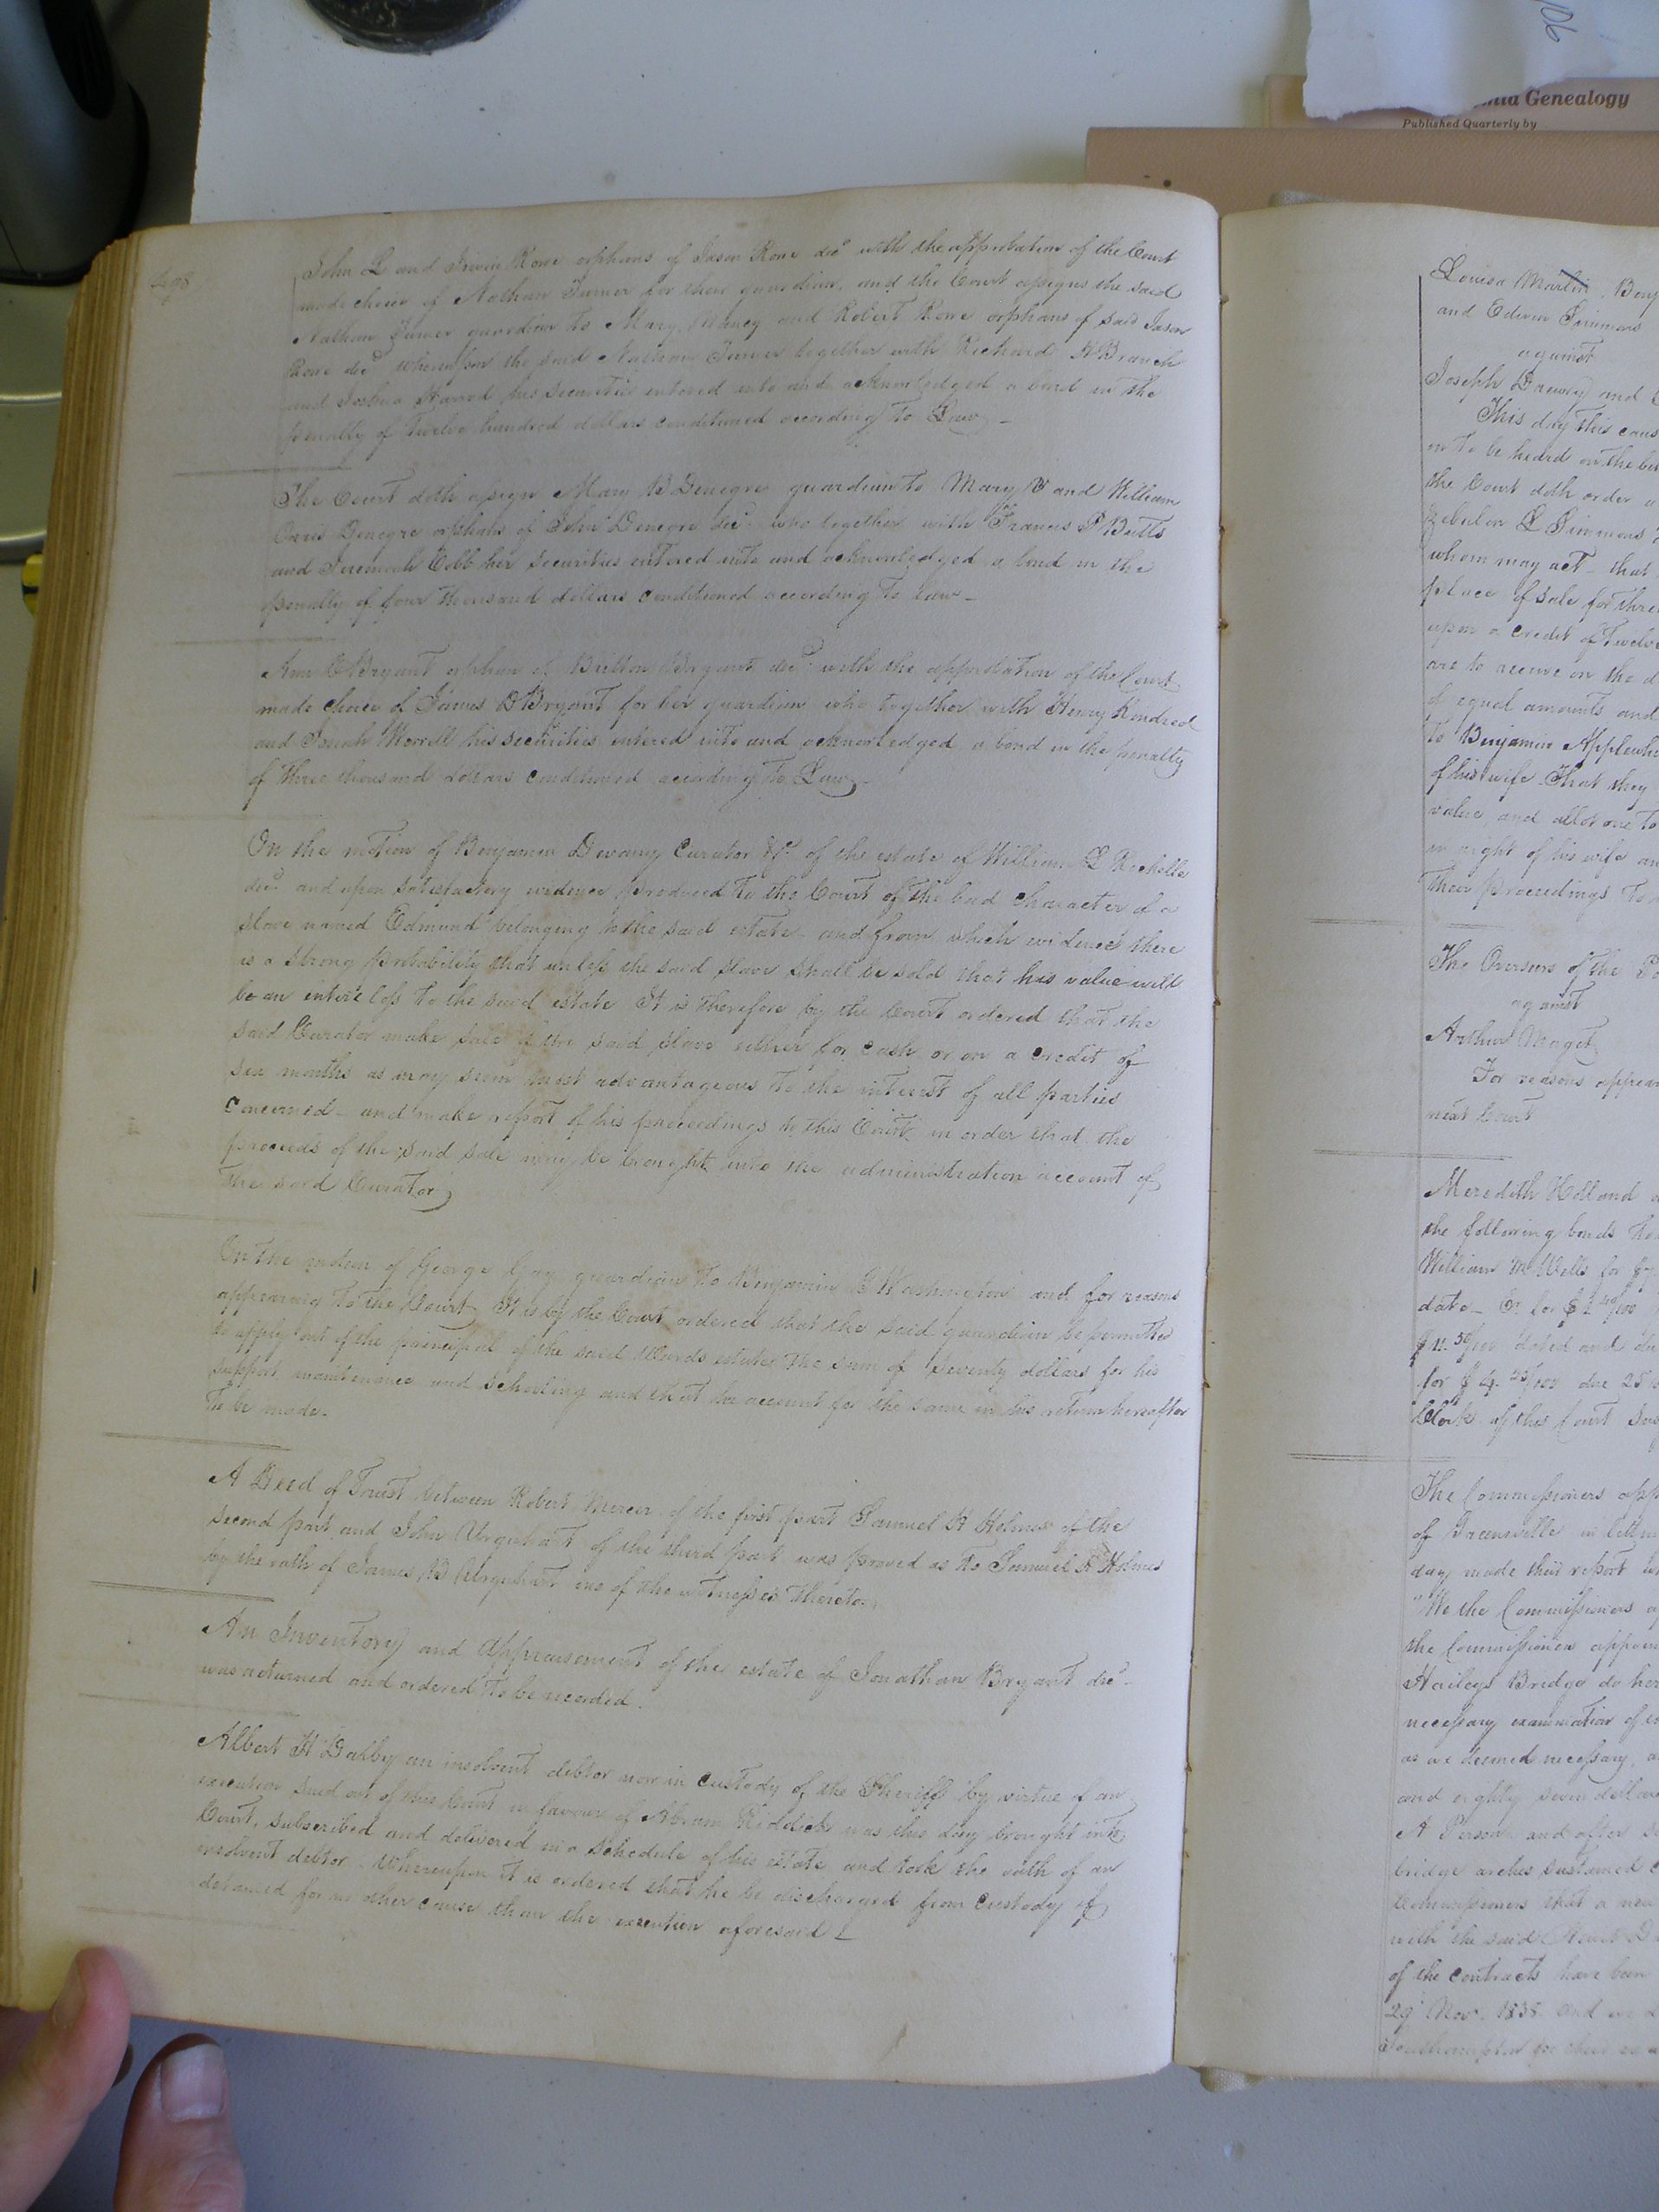 Genealogy
Published Quarterly by
John L and Irwin Rowe orphans of Jason Rowe decd with the approbation of the Court
made choice of Nathan Turner for their guardian, and the Court assigns the said
Nathan Turner guardian to Mary, Nancy and Robert Rowe orphans of said Jason
Rowe decd whereupon the said Nathan Turner together with Richard H Branch
and Joshua Harrod his securities entered into and acknowledged a bond in the
penalty of Twelve hundred dollars conditioned according to Law
The Court doth assign Mary B Denegre guardian to Mary V and William
Orris Denegre orphans of John Denegre decd who together with Francis P Butts
and Jeremiah Cobb her securities entered into and acknowledged a bond in the
penalty of four thousand dollars conditioned according to Law
Ann E Bryant orphan of Britton Bryant decd with the approbation of the Court
made choice of James D Bryant for her guardian who together with Henry Kindred
and Worrell his securities entered into and acknowledged a bond in the penalty
of three thousand dollars conditioned according to Law
On the motion of Benjamin Devany Curator &c of the estate of William L Rochelle
decd and upon satisfactory evidence produced to the Court of the bad character of a
slave named Edmund belonging to the said estate and from which evidence there
is a strong probability that unless the said slave shall be sold that his value will
be an entire loss to the said estate It is therefore by the Court ordered that the
said Curator make sale of the said slave either for cash or on a credit of
six months as may seem most advantageous to the interest of all parties
Concerned - and make report of his proceedings to this Court in order that the
proceeds of the said sale may be brought into the administration account of
the said Curator
On the motion of George Gay guardian to Benjamin Washington and for reasons
appearing to the Court It is by the Court ordered that the said guardian be permitted
to apply out of the principal of the said Wards estate the sum of Seventy dollars for his
support, maintenance and schooling and that he account for the same in his return hereafter
to be made.
A Deed of Trust between Robert Mercer of the first part Samuel H Holmes of the
second part and John Urquhart of the third part was proved as to Samuel H Holmes
by the oath of James B Urquhart one of the witnesses thereto
An Inventory and appraisement of the estate of Jonathan Bryant decd
was returned and ordered to be recorded.
Albert H Dalby an insolvent debtor now in custody of the Sheriff by virtue of an
execution sued out of this Court in favour of Abram Riddick was this day brought into
Court, subscribed and delivered in a schedule of his estate and took the oath of an
insolvent debtor Whereupon it is ordered that he be discharged from custody if
detained for no other cause than the execution aforesaid
Louisa Martin
and Edwin Simmons
against
Joseph Drewry and
This day this caus
on to be heard on the
the Court doth order
Zebulon L Simmons
whom may act - that
place of sale for
upon a credit of Twelve
are to accrue on the d
of equal amounts and
to Benjamin Applewh
of his wife - That they
value, and allot one to
in right of his wife an
their proceedings to
The Overseers of the Po
against
Arthur Maget
For reasons appear
next Court
Meredith Holland
the following bonds
William M Wells for
date -
dated and
due 25
Clerk of this Court
The Commissioners app
of Greensville in
day made their report
"We the Commissioners
the Commissioner appoin
Haileys Bridge do her
necessary examination of
as we deemed necessary,
and eighty seven dollars
A Person and after
bridge arches sustained
Commissioners that a new
with the said
of the contracts have been
29 Nov. 1838 and